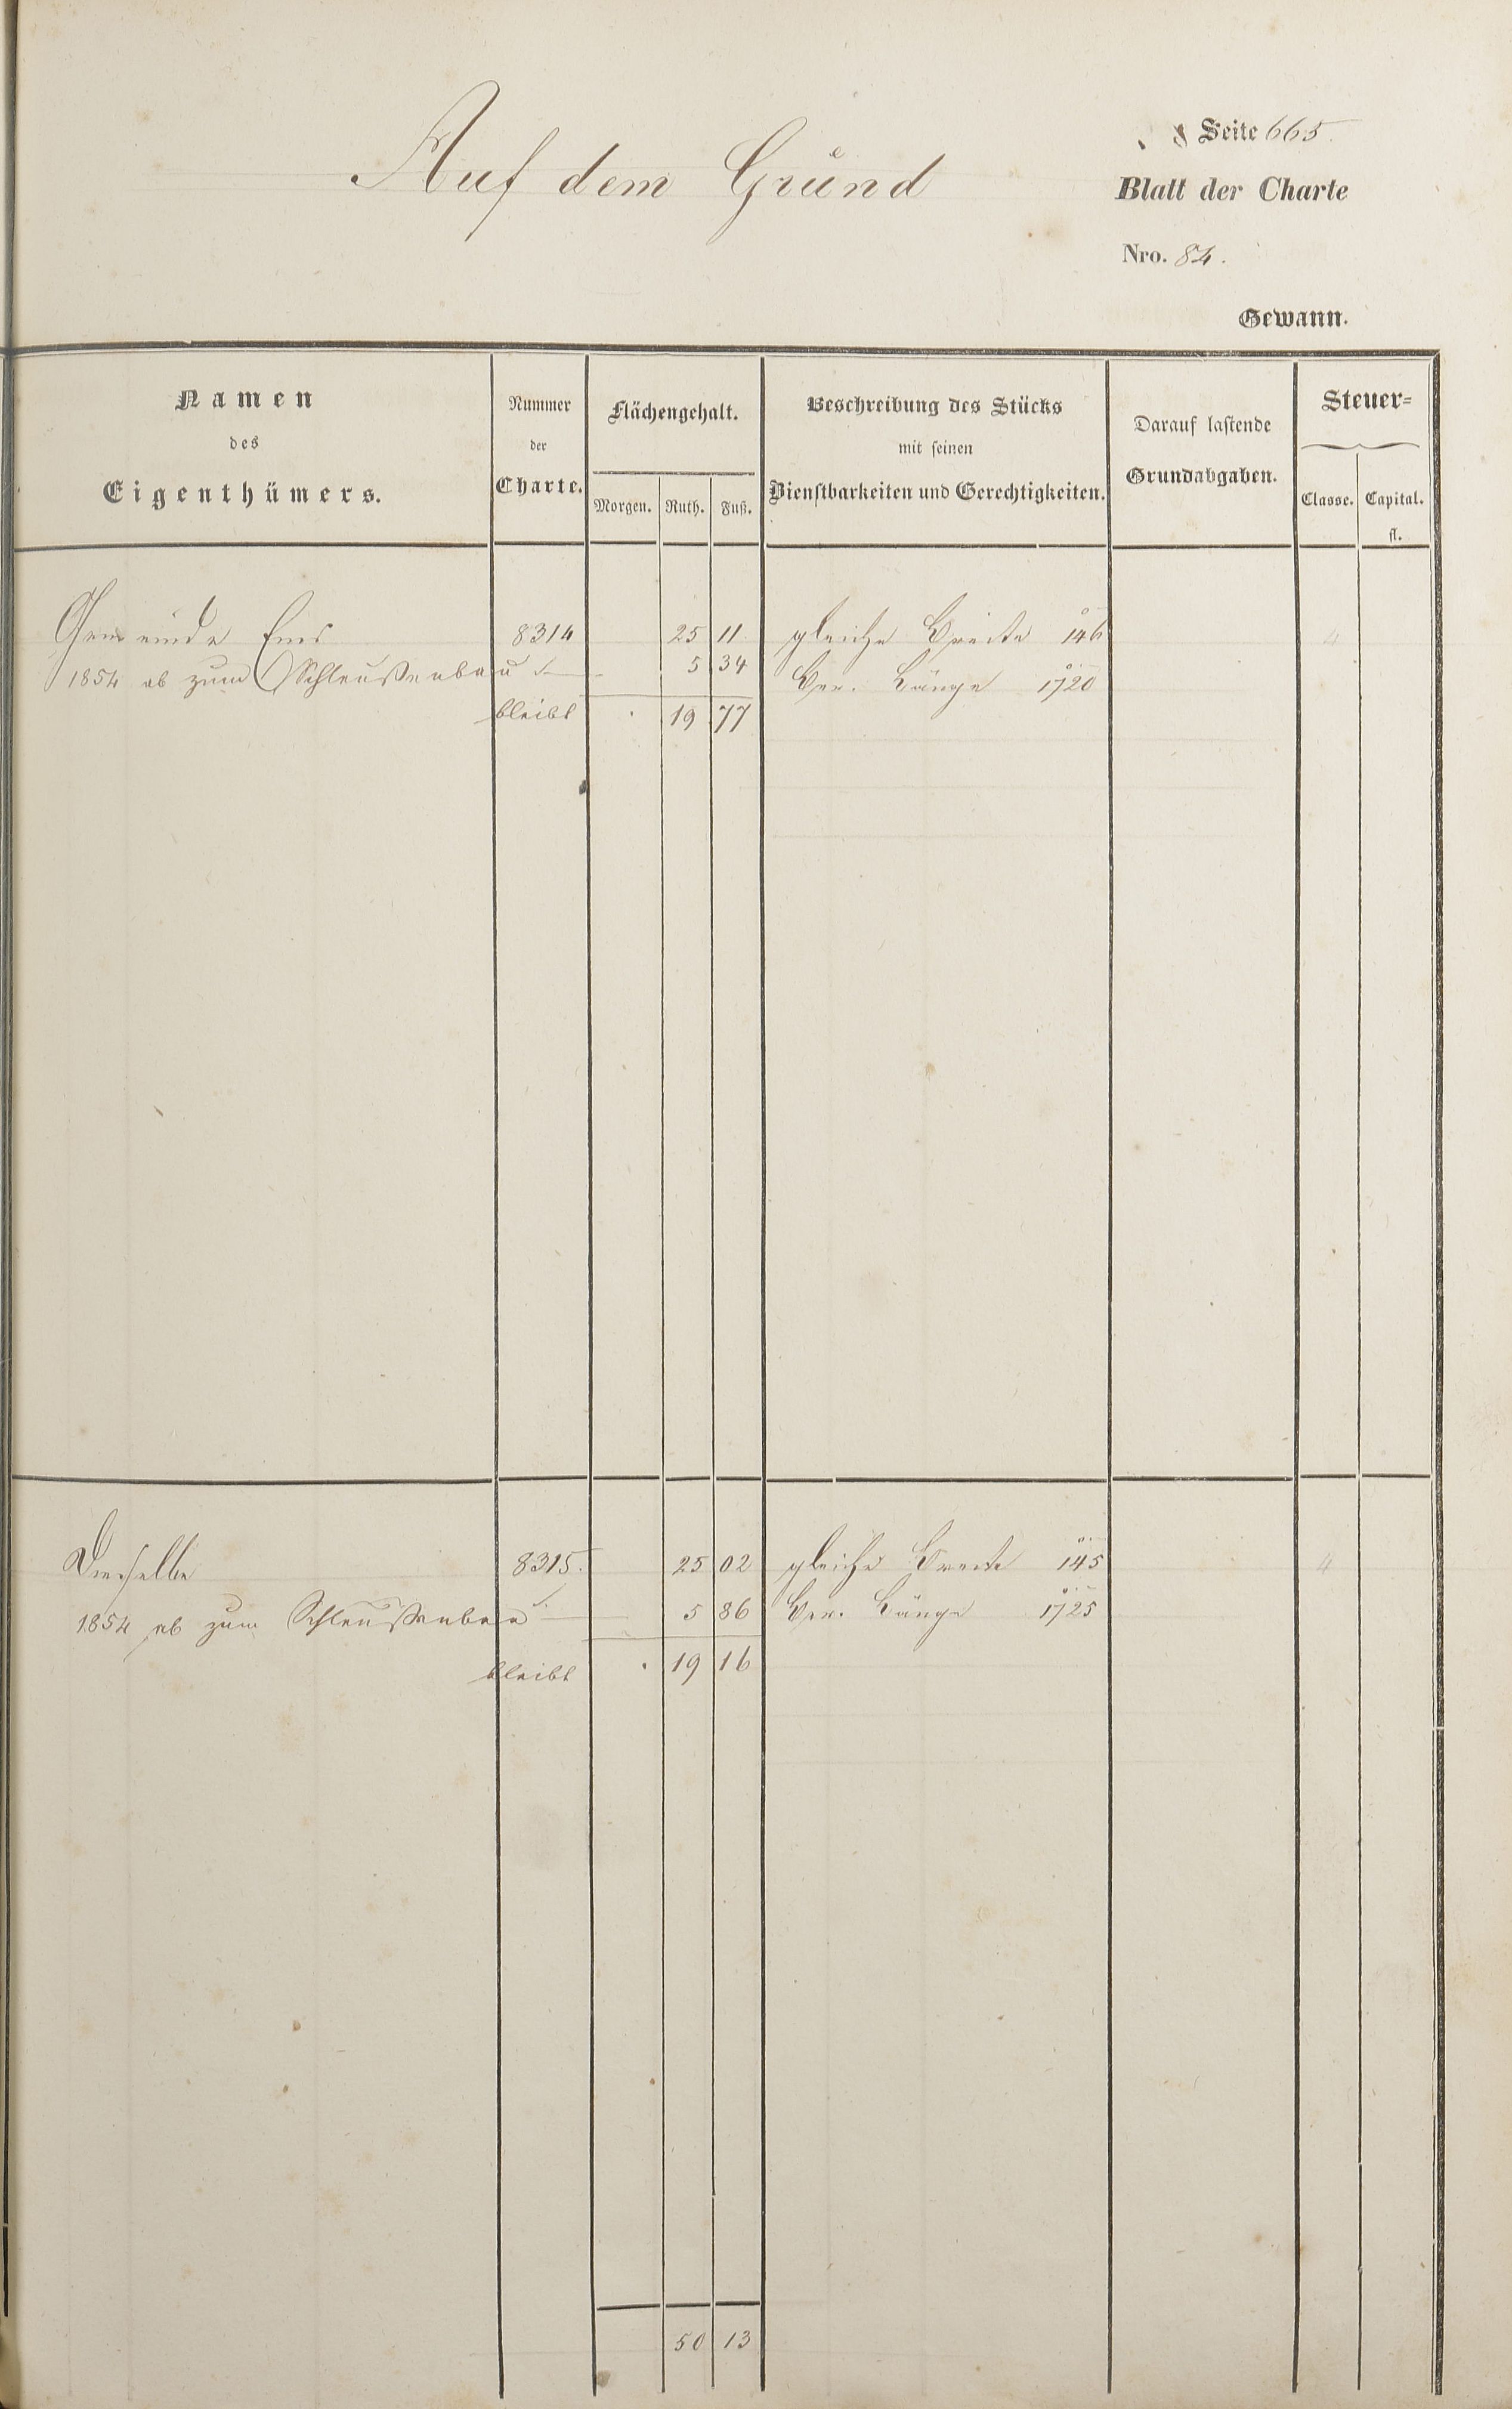 Auf dem Grund
Seite 665.
Blatt der Charte
Nro. 84.
Gewann.
Namen
des
Eigenthümers.
Nummer
der
Charte.
Flächengehalt.
Morgen. Ruth. Fuß.
Beschreibung des Stücks
mit seinen
Dienstbarkeiten und Gerechtigkeiten.
Darauf lastende
Grundabgaben.
Steuer-
Classe. Capital.
fl.
Gemeinde Ems 8314 25 11 gleiche Breite 146 4
1854 ab zum Schleußenbau 5 34 Ber. Länge 1720
bleibt 19 77
Dieselbe 8315. 25 02 gleiche Breite 145 4
1854 ab zum Schleußenbau 5 86 Ber. Länge 1725
bleibt 19 16
50 13